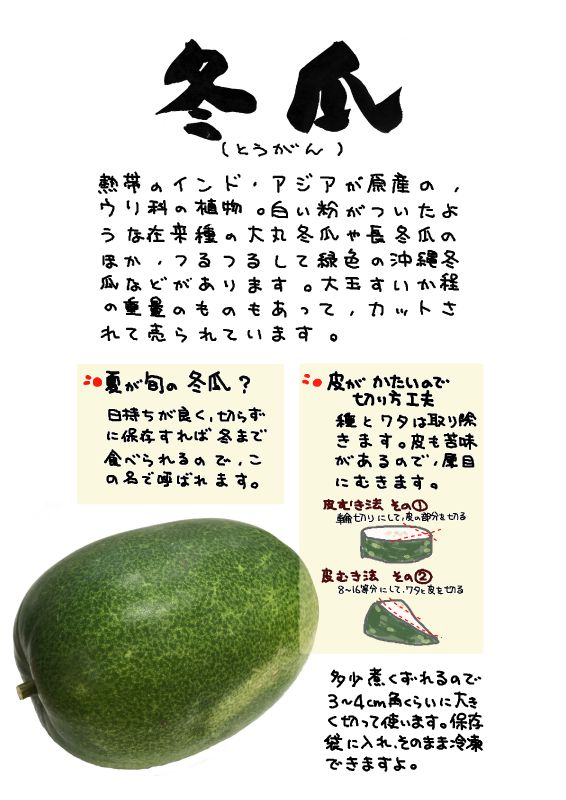 冬瓜
(とうがん)
熱帯のインド・アジアが原産の，
ウリ科の植物。白い粉がついたよ
うな在来種の大丸冬瓜や長冬瓜の
ほか，つるつるして緑色の沖縄冬
瓜などがあります。大玉すいか程
の重量のものもあって，カットさ
れて売られています。
夏が旬の冬瓜？
日持ちが良く，切らず
に保存すれば冬まで
食べられるので，こ
の名で呼ばれます。
皮がかたいので
切り方工夫
種とワタは取り除
きます。皮も苦味
があるので，厚目
にむきます。
皮むき法 その①
輪切りにして，皮の部分を切る
皮むき法 その②
8~16等分にして，ワタと皮を切る
多少煮くずれるので
3~4cm角くらいに大き
く切って使います。保存
袋に入れ，そのまま冷凍
できますよ。